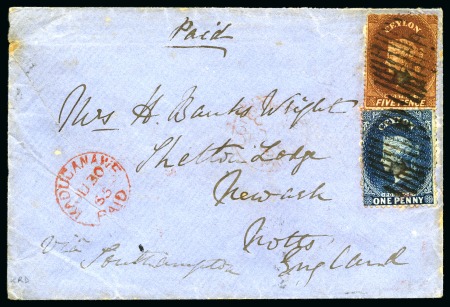 Paid
CEYLON
FIVE PENCE
CEYLON
ONE PENNY
Mrs H. Banks Wright
Shelton Lodge
Newark
Notts
England
via Southampton
KADUGANAWE
30
PAID